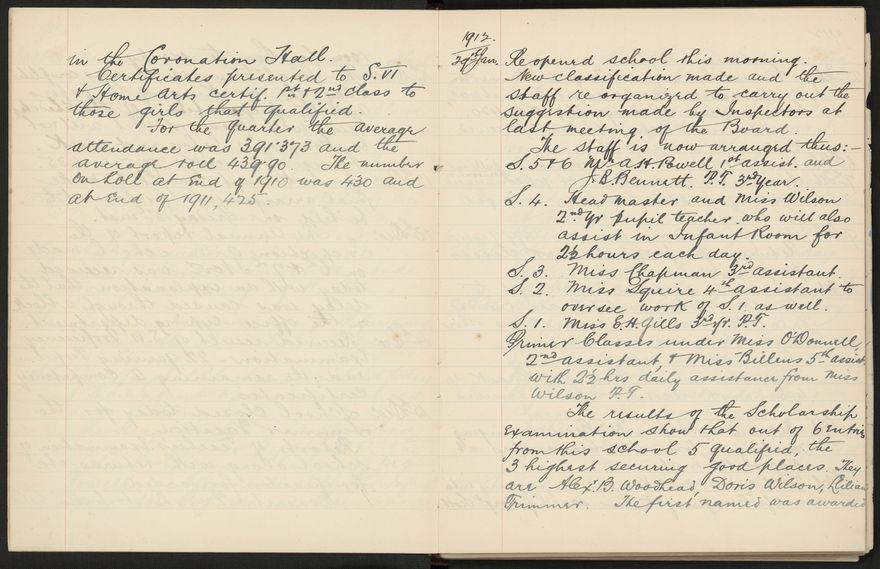 in the Coronation Hall.
Certificates presented to S.VI
& Home Arts certif. 1st & 2nd class to
those girls that qualified.
For the quarter the average
attendance was 391.373 and the
average roll 439.90. The number
on Roll at End of 1910 was 430 and
at End of 1911, 425.
1912.
29th Jan. Reopened school this morning.
New classification made and the
staff re organized to carry out the
suggestion made by Inspectors at
last meeting of the Board.
The staff is now arranged thus:-
S. 5 & 6 Mr A.H. Powell 1st assist. and
J.B. Bennett. P.T. 3rd Year.
S. 4. Head Master and Miss Wilson
2nd Yr pupil teacher who will also
assist in Infant Room for
2½ hours each day.
S. 3. Miss Chapman 3rd assistant.
S. 2. Miss Squire 4th assistant to
oversee work of S.1 as well.
S. 1. Miss E.H. Gills 3rd Yr. P.T.
Primer Classes under Miss O'Donnell,
2nd assistant & Miss Billens 5th assist.
with 2½ hrs daily assistance from Miss
Wilson P.T.
The results of the Scholarship
Examination show that out of 6 Entries
from this school 5 qualified, the
3 highest securing good places. They
are Alexr B. Woodhead, Doris Wilson, Lilian
Trimmer. The first named was awarded